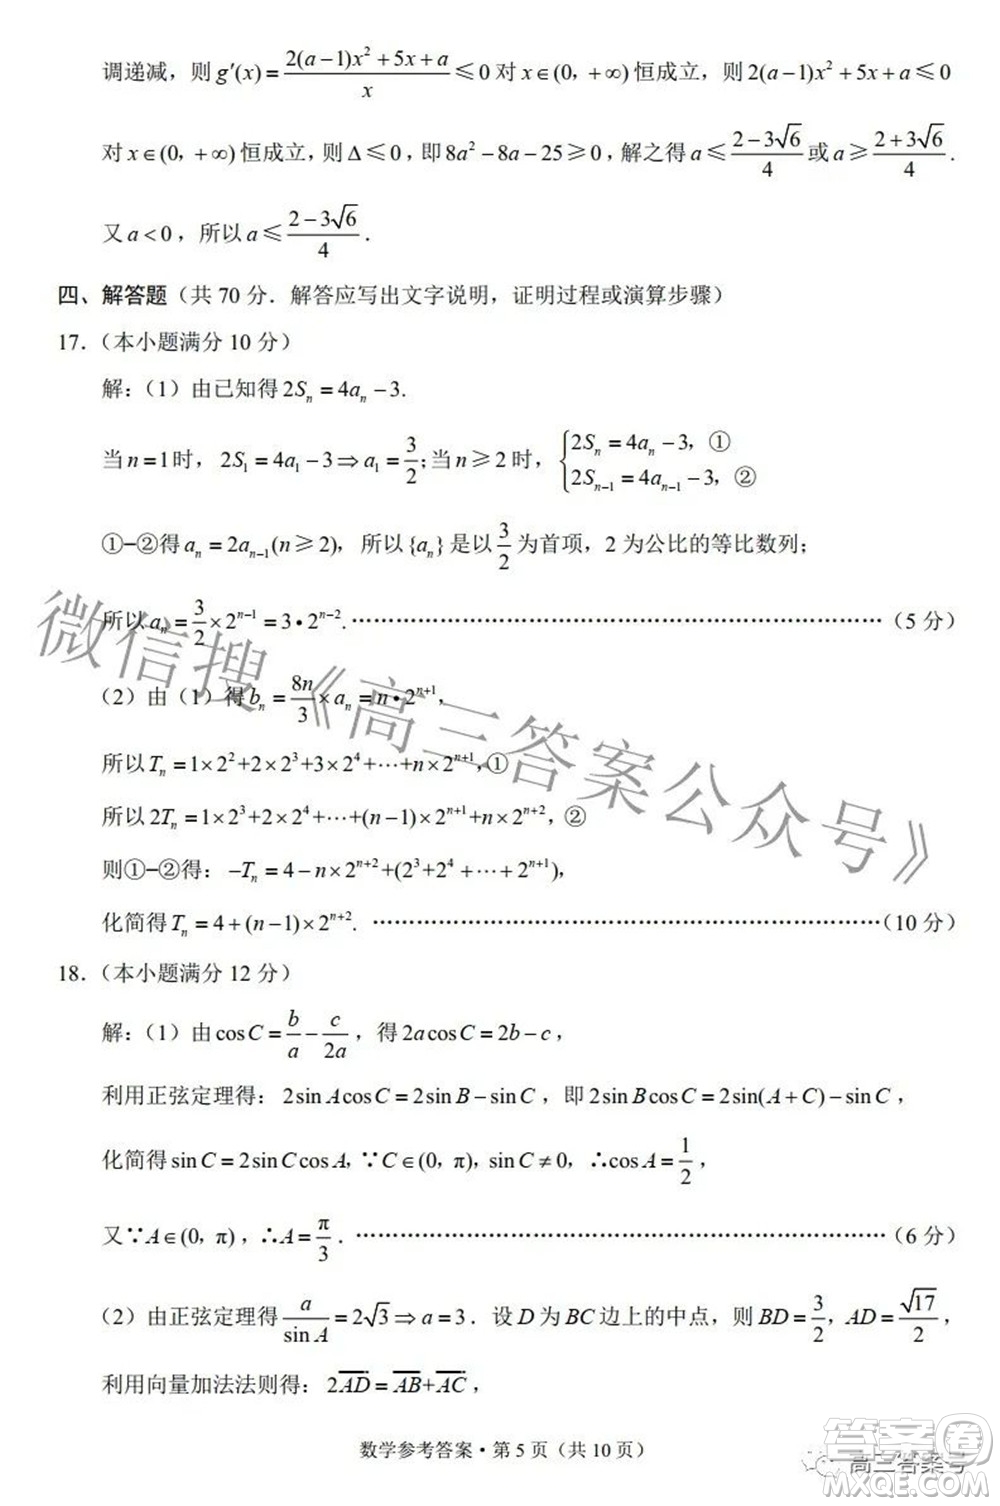 调递减，则 g′(x)=\frac{2(a−1)x²+5x+a}{x}≤0 对 x∈(0，+∞) 恒成立，则 2(a−1)x²+5x+a≤0
对 x∈(0，+∞) 恒成立，则 Δ≤0，即 8a²−8a−25≥0，解之得 a≤\frac{2−3√6}{4} 或 a≥\frac{2+3√6}{4}．
又 a<0，所以 a≤\frac{2−3√6}{4}．
四、解答题（共 70 分．解答应写出文字说明，证明过程或演算步骤）
17．（本小题满分 10 分）
解：（1）由已知得 2Sₙ=4aₙ−3.
当 n=1 时，2S₁=4a₁−3⇒a₁=\frac{3}{2}；当 n≥2 时，{2Sₙ=4aₙ−3，①
2Sₙ₋₁=4aₙ₋₁−3，②
①−②得 aₙ=2aₙ₋₁(n≥2)，所以{aₙ}是以 \frac{3}{2} 为首项，2 为公比的等比数列；
所以 aₙ=\frac{3}{2}×2ⁿ⁻¹=3•2ⁿ⁻².……………………………………（5 分）
（2）由（1）得 bₙ=\frac{8n}{3}×aₙ=n•2ⁿ⁺¹，
所以 Tₙ=1×2²+2×2³+3×2⁴+⋯+n×2ⁿ⁺¹，①
所以 2Tₙ=1×2³+2×2⁴+⋯+(n−1)×2ⁿ⁺¹+n×2ⁿ⁺²，②
则①−②得：−Tₙ=4−n×2ⁿ⁺²+(2³+2⁴+⋯+2ⁿ⁺¹)，
化简得 Tₙ=4+(n−1)×2ⁿ⁺².……………………………………（10 分）
18．（本小题满分 12 分）
解：（1）由 cosC=\frac{b}{a}−\frac{c}{2a}，得 2acosC=2b−c，
利用正弦定理得：2sinAcosC=2sinB−sinC，即 2sinBcosC=2sin(A+C)−sinC，
化简得 sinC=2sinCcosA，∵C∈(0，π)，sinC≠0，∴cosA=\frac{1}{2}，
又∵A∈(0，π)，∴A=\frac{π}{3}．……………………………………（6 分）
（2）由正弦定理得 \frac{a}{sinA}=2√3⇒a=3．设 D 为 BC 边上的中点，则 BD=\frac{3}{2}，AD=\frac{√17}{2}，
利用向量加法法则得：2\overrightarrow{AD}=\overrightarrow{AB}+\overrightarrow{AC}，
数学参考答案·第 5 页（共 10 页）
微信搜《高三答案公众号》
高三答案号
答案圈
MXQE.COM